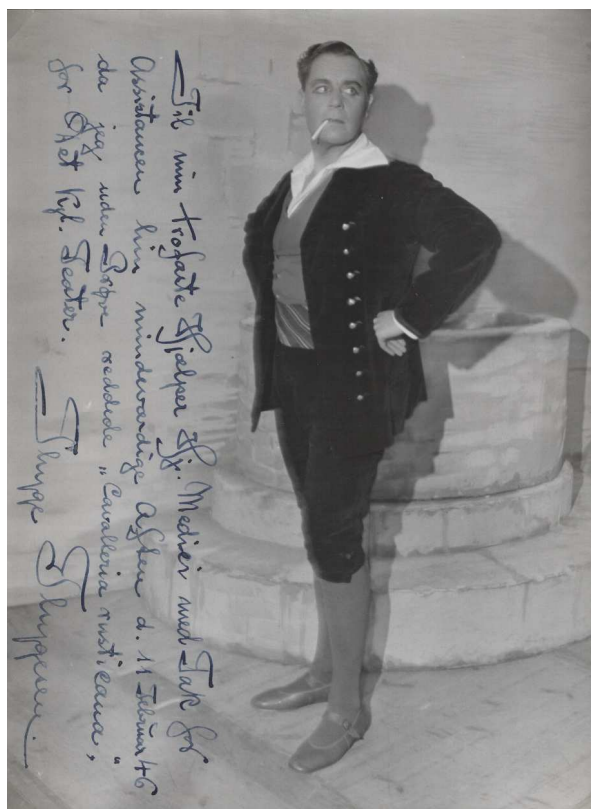 Til min trofaste Hjælper Hj. Medici med Tak for
Assistancen hin mindeværdige Aften d. 11 Februar 46
da jeg uden Prøve reddede „Cavalleria rusticana“,
for Det kgl. Teater.
Thyge Thygesen.